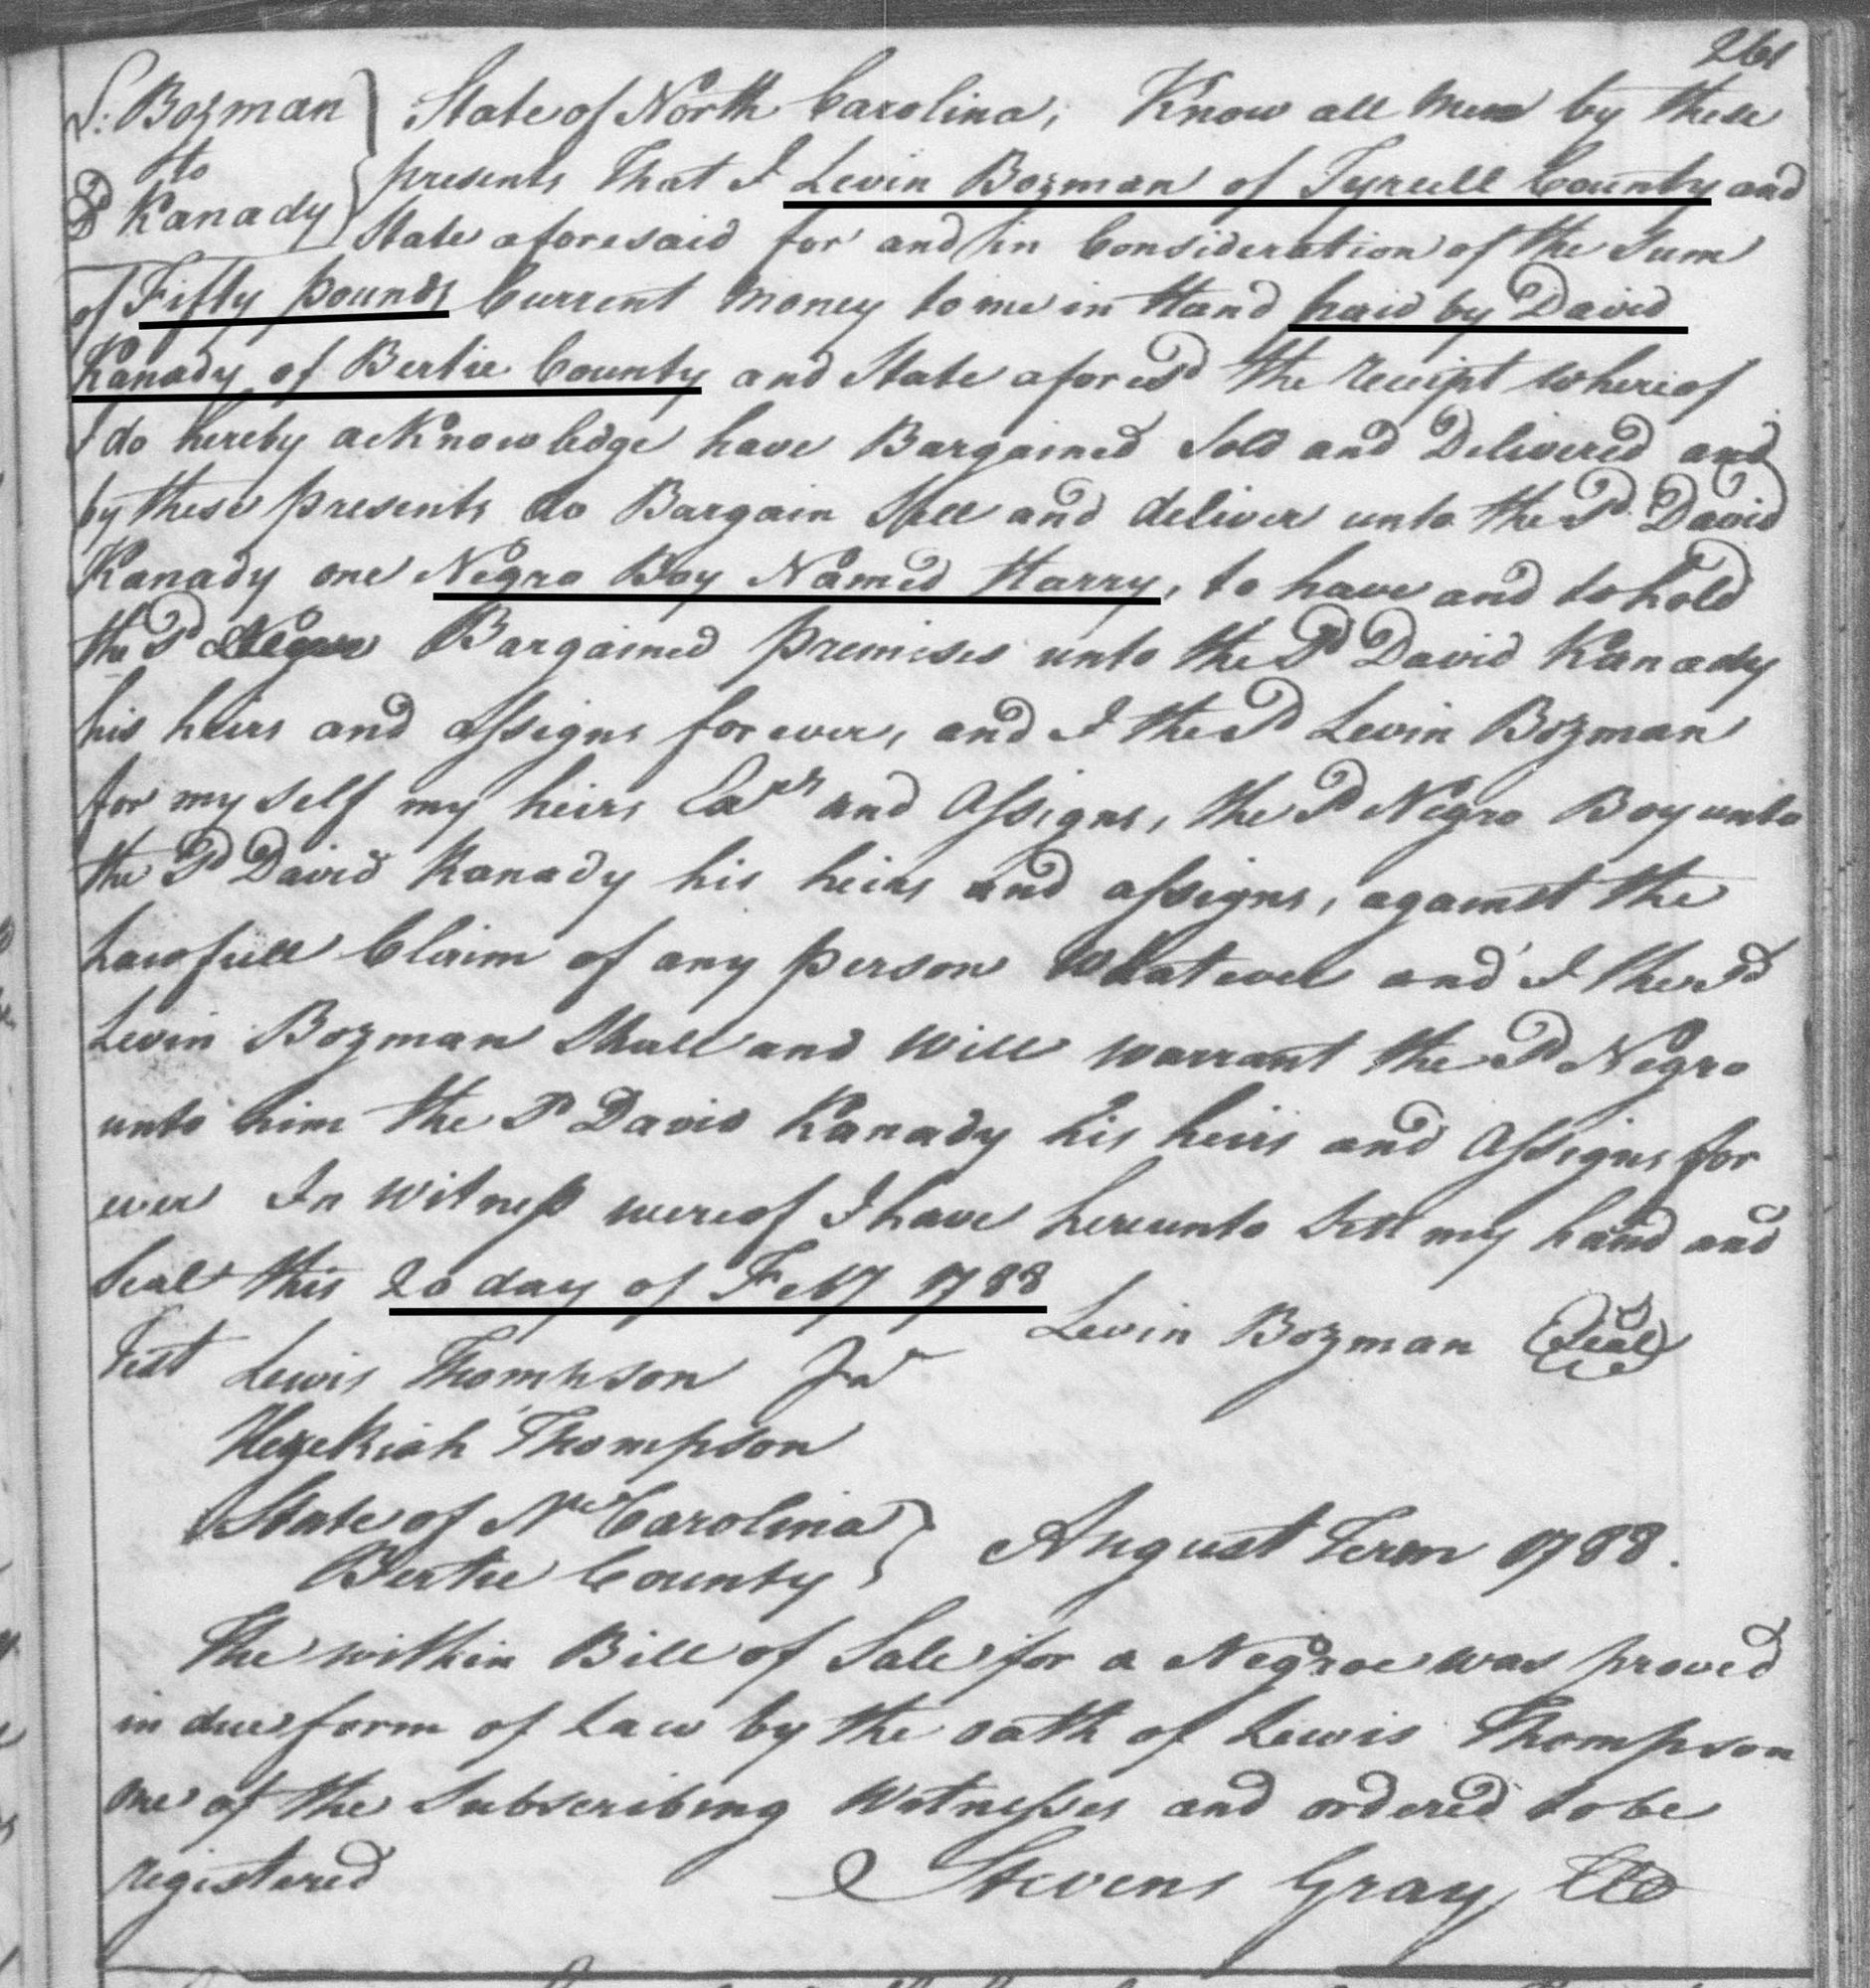 261
L: Bozman
to
D Kanady
State of North Carolina; Know all Men by these
presents That I Levin Bozman of Tyrell County and
State aforesaid for and in Consideration of the Sum
of Fifty pounds Current Money to me in Hand paid by David
Kanady of Bertie County and State aforesd the receipt whereof
I do hereby acknowledge have Bargained Sold and Delivered and
by these presents do Bargain Sell and deliver unto the Sd David
Kanady one Negro Boy Named Harry, to have and to hold
the Sd Bargained premises unto the Sd David Kanady
his heirs and assigns forever, and I the Sd Levin Bozman
for my self my heirs Exrs and Assigns, the Sd Negro Boy unto
the Sd David Kanady his heirs and assigns, against the
Lawfull Claim of any person Whatever and I the Sd
Levin Bozman Shall and Will warrant the Sd Negro
unto him the Sd David Kanady his heirs and Assigns for
ever In Witness wereof I have hereunto Sett my hand and
Seal this 20 day of Feby 1788
Levin Bozman Seal
Test Lewis Thompson Jur
Hezekiah Thompson
State of No Carolina
Bertie County
August Term 1788.
The within Bill of Sale for a Negroe was proved
in due form of Law by the oath of Lewis Thompson
one of the Subscribing Witnesses and ordered to be
registered
Stevens Gray CC